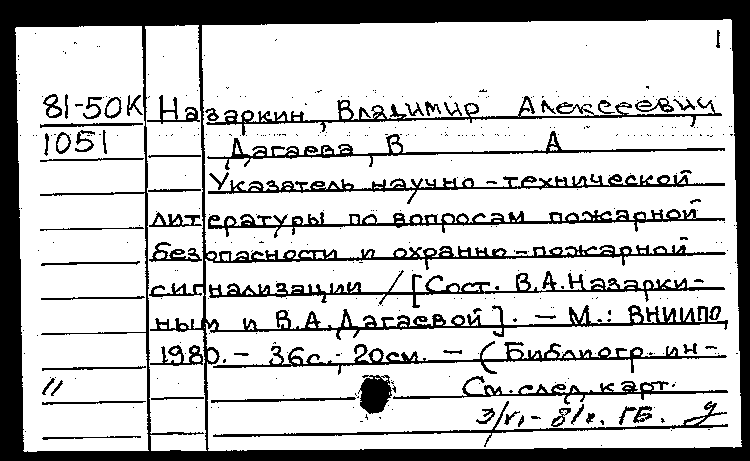 1
81-50К Назаркин, Владимир Алексеевич,
1051 Дагаева, В А
Указатель научно-технической
литературы по вопросам пожарной
безопасности и охранно-пожарной
сигнализации / [Сост. В.А.Назарки-
ным и В.А.Дагаевой]. - М.: ВНИИПО,
1980. - 36с.; 20см. - (Библиогр. ин-
" См. след. карт.
3/VI - 81г. ГБ.